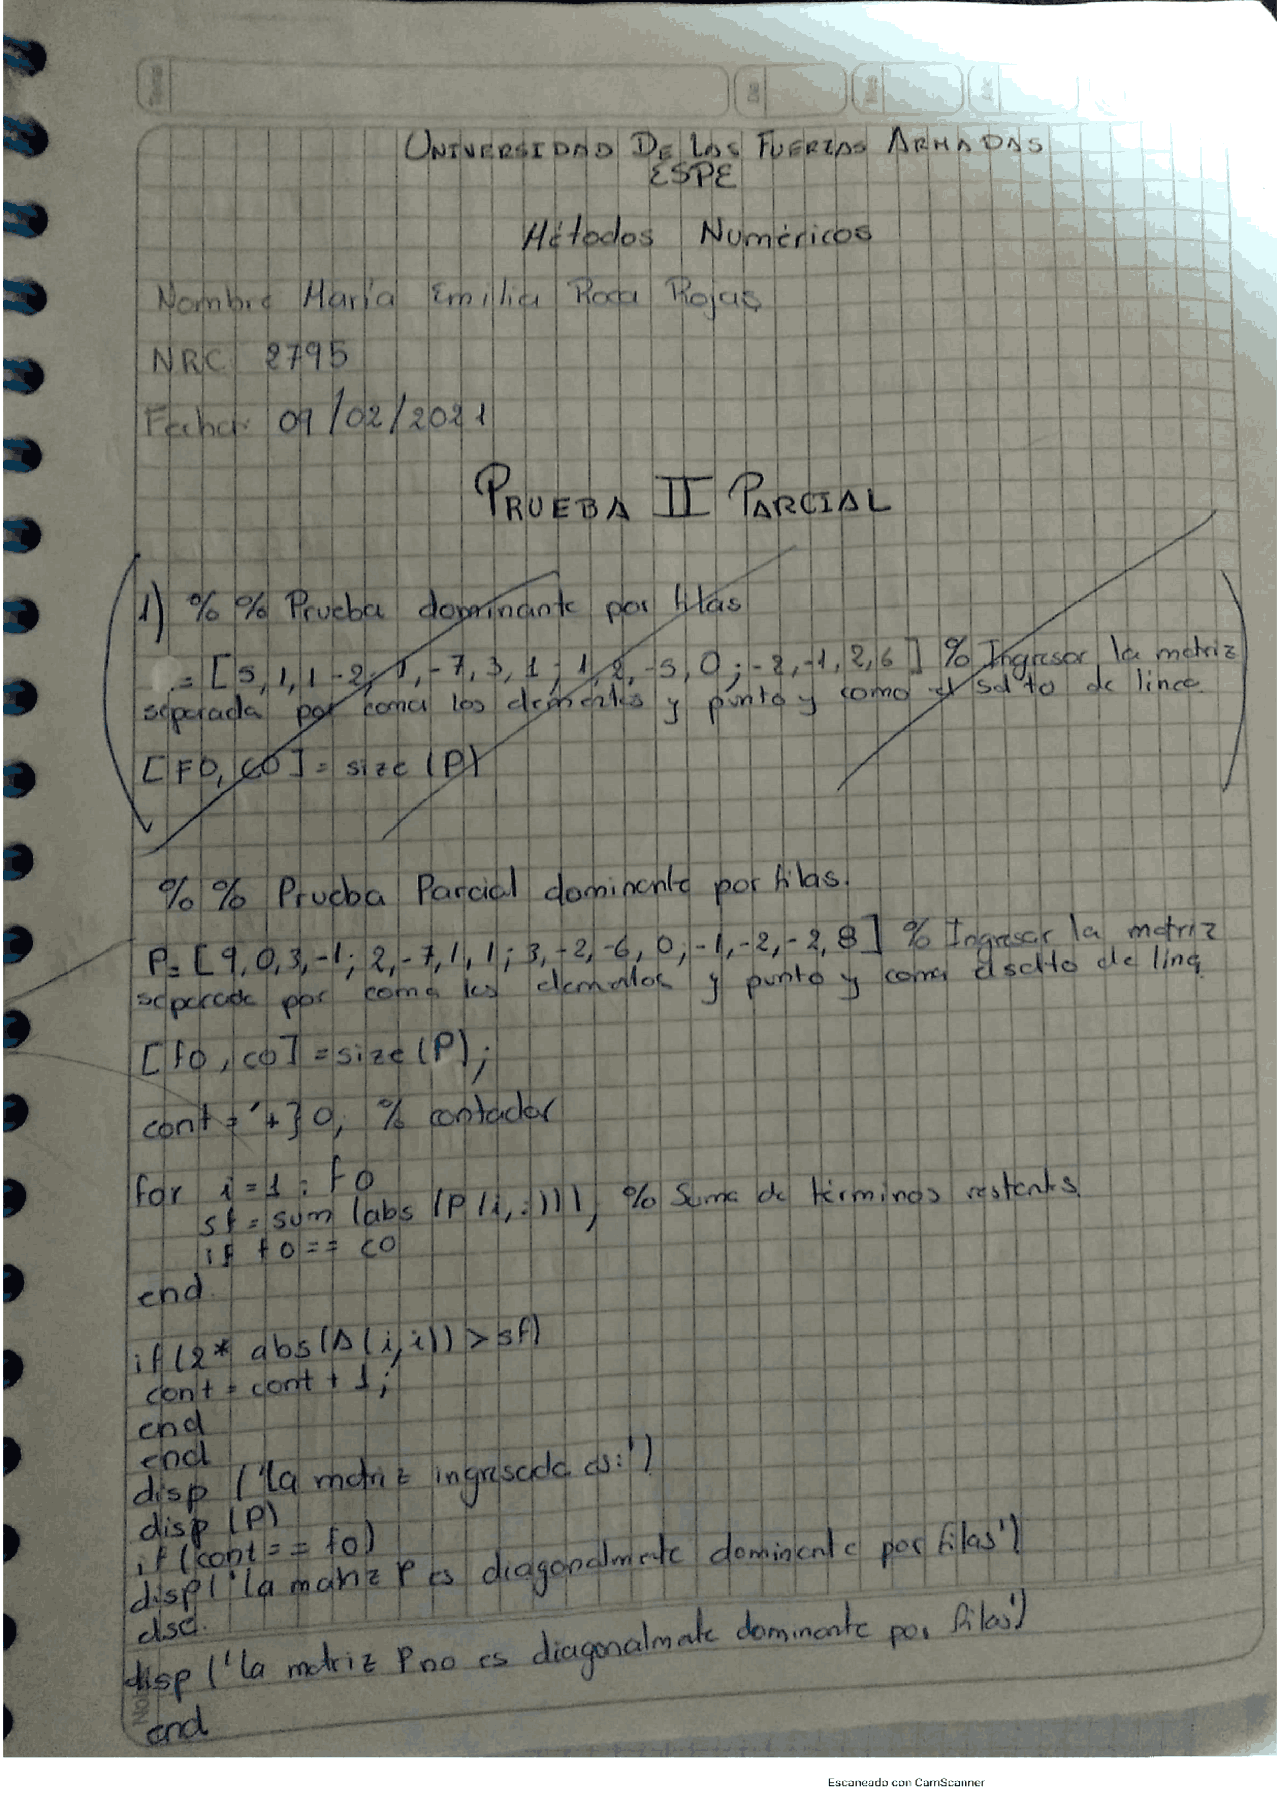 UNIVERSIDAD DE LAS FUERZAS ARMADAS
ESPE
Métodos Numéricos
Nombre María Emilia Roca Rojas
NRC 2795
Fecha: 09/02/2021
PRUEBA II PARCIAL
1) %% Prueba dominante por filas
= [5,1,1-2; 1,-7,3,1; 1,2,-5,0; -2,-1,2,6] % Ingresar la matriz
separada por coma los elementos y punto y coma el salto de linea
[FO, CO] = size (P)
%% Prueba Parcial dominante por filas.
P= [9,0,3,-1; 2,-7,1,1; 3,-2,-6,0; -1,-2,-2,8] % Ingresar la matriz
separada por coma los elementos y punto y coma el salto de linea
[fo, co] = size (P);
cont = 0; % contador
for i=1:fo
sf = sum (abs (P(i,:))); % Suma de términos restantes
if fo == co
end
if (2* abs(A(i,i)) > sf)
cont = cont + 1;
end
end
disp ('la matriz ingresada es:')
disp (P)
if (cont == fo)
disp( 'la matriz P es diagonalmente dominante por filas')
else
disp ('la matriz P no es diagonalmate dominante por filas')
end
Escaneado con CamScanner